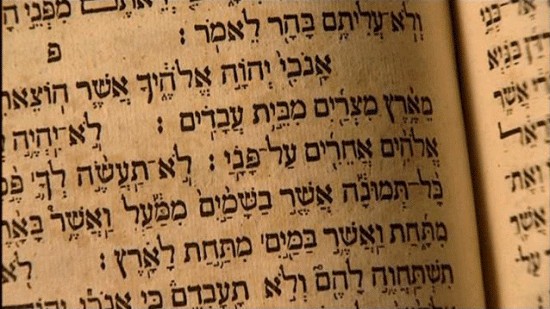 מִפְּנֵי
וְלֹא־עֲלִיתֶם בָּהָר לֵאמֹר׃
פ
אָנֹכִי יְהוָה אֱלֹהֶיךָ אֲשֶׁר הוֹצֵאתִ
מֵאֶרֶץ מִצְרַיִם מִבֵּית עֲבָדִים׃ לֹא־יִהְיֶה
אֱלֹהִים אֲחֵרִים עַל־פָּנָי׃ לֹא־תַעֲשֶׂה לְךָ
כָּל־תְּמוּנָה אֲשֶׁר בַּשָּׁמַיִם מִמַּעַל וַאֲשֶׁר בָּאָרֶ
מִתָּחַת וַאֲשֶׁר בַּמַּיִם מִתַּחַת לָאָרֶץ׃ לֹא
תִשְׁתַּחֲוֶה לָהֶם וְלֹא תָעָבְדֵם כִּי אָנֹכִי יְהוָה